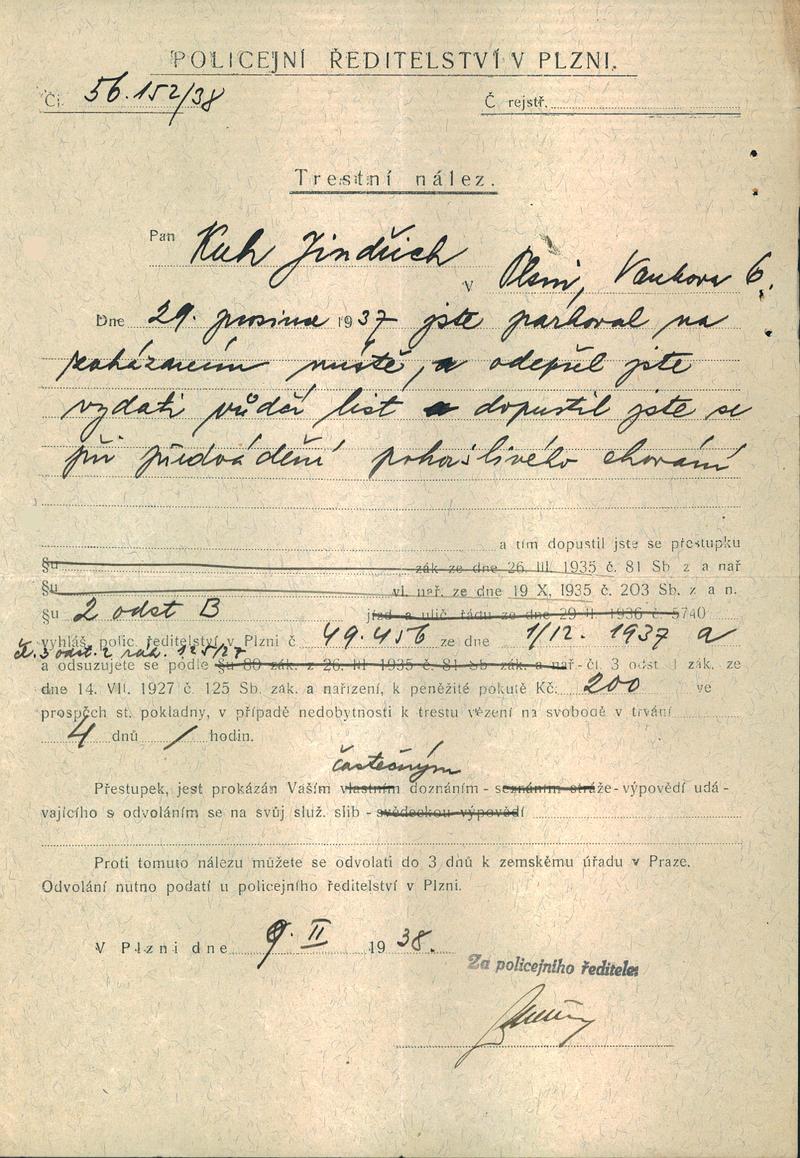 POLICEJNÍ ŘEDITELSTVÍ V PLZNI.
Čj. 56.152/38 Č rejstř.
Trestní nález.
Pan Kuh Jindřich
v Plzni, 6.
Dne 29. prosince 1937 jste parkoval na
zakázaném místě, a odepřel jste
vydati vůdčí list a dopustil jste se
při předvádění pohoršlivého chování
a tím dopustil jste se přestupku
§u zák ze dne 26. III. 1935 č. 81 Sb z a nař
§u vl. nař. ze dne 19 X. 1935 č. 203 Sb. z a n.
§u 2 odst B jízd a ulič. řádu ze dne 29 II. 1936 č. 5740
vyhláš. polic. ředitelství v Plzni č 49.456 ze dne 1/12. 1937 a
čl. 3 odst. 2 zák. 125/27
a odsuzujete se podle §u 80 zák. z 26. III 1935 č. 81 Sb zák. a nař - čl. 3 odst 1 zák. ze
dne 14. VII. 1927 č. 125 Sb. zák. a nařízení, k peněžité pokutě Kč. 200 ve
prospěch st. pokladny, v případě nedobytnosti k trestu vězení na svobodě v trvání
4 dnů / hodin.
částečným
Přestupek, jest prokázán Vaším vlastním doznáním - seznáním stráže - výpovědí udá -
vajícího s odvoláním se na svůj služ. slib - svědeckou výpovědí
Proti tomuto nálezu můžete se odvolati do 3 dnů k zemskému úřadu v Praze.
Odvolání nutno podatí u policejního ředitelství v Plzni.
V Plzni dne 9. II 1938.
Za policejního ředitele: